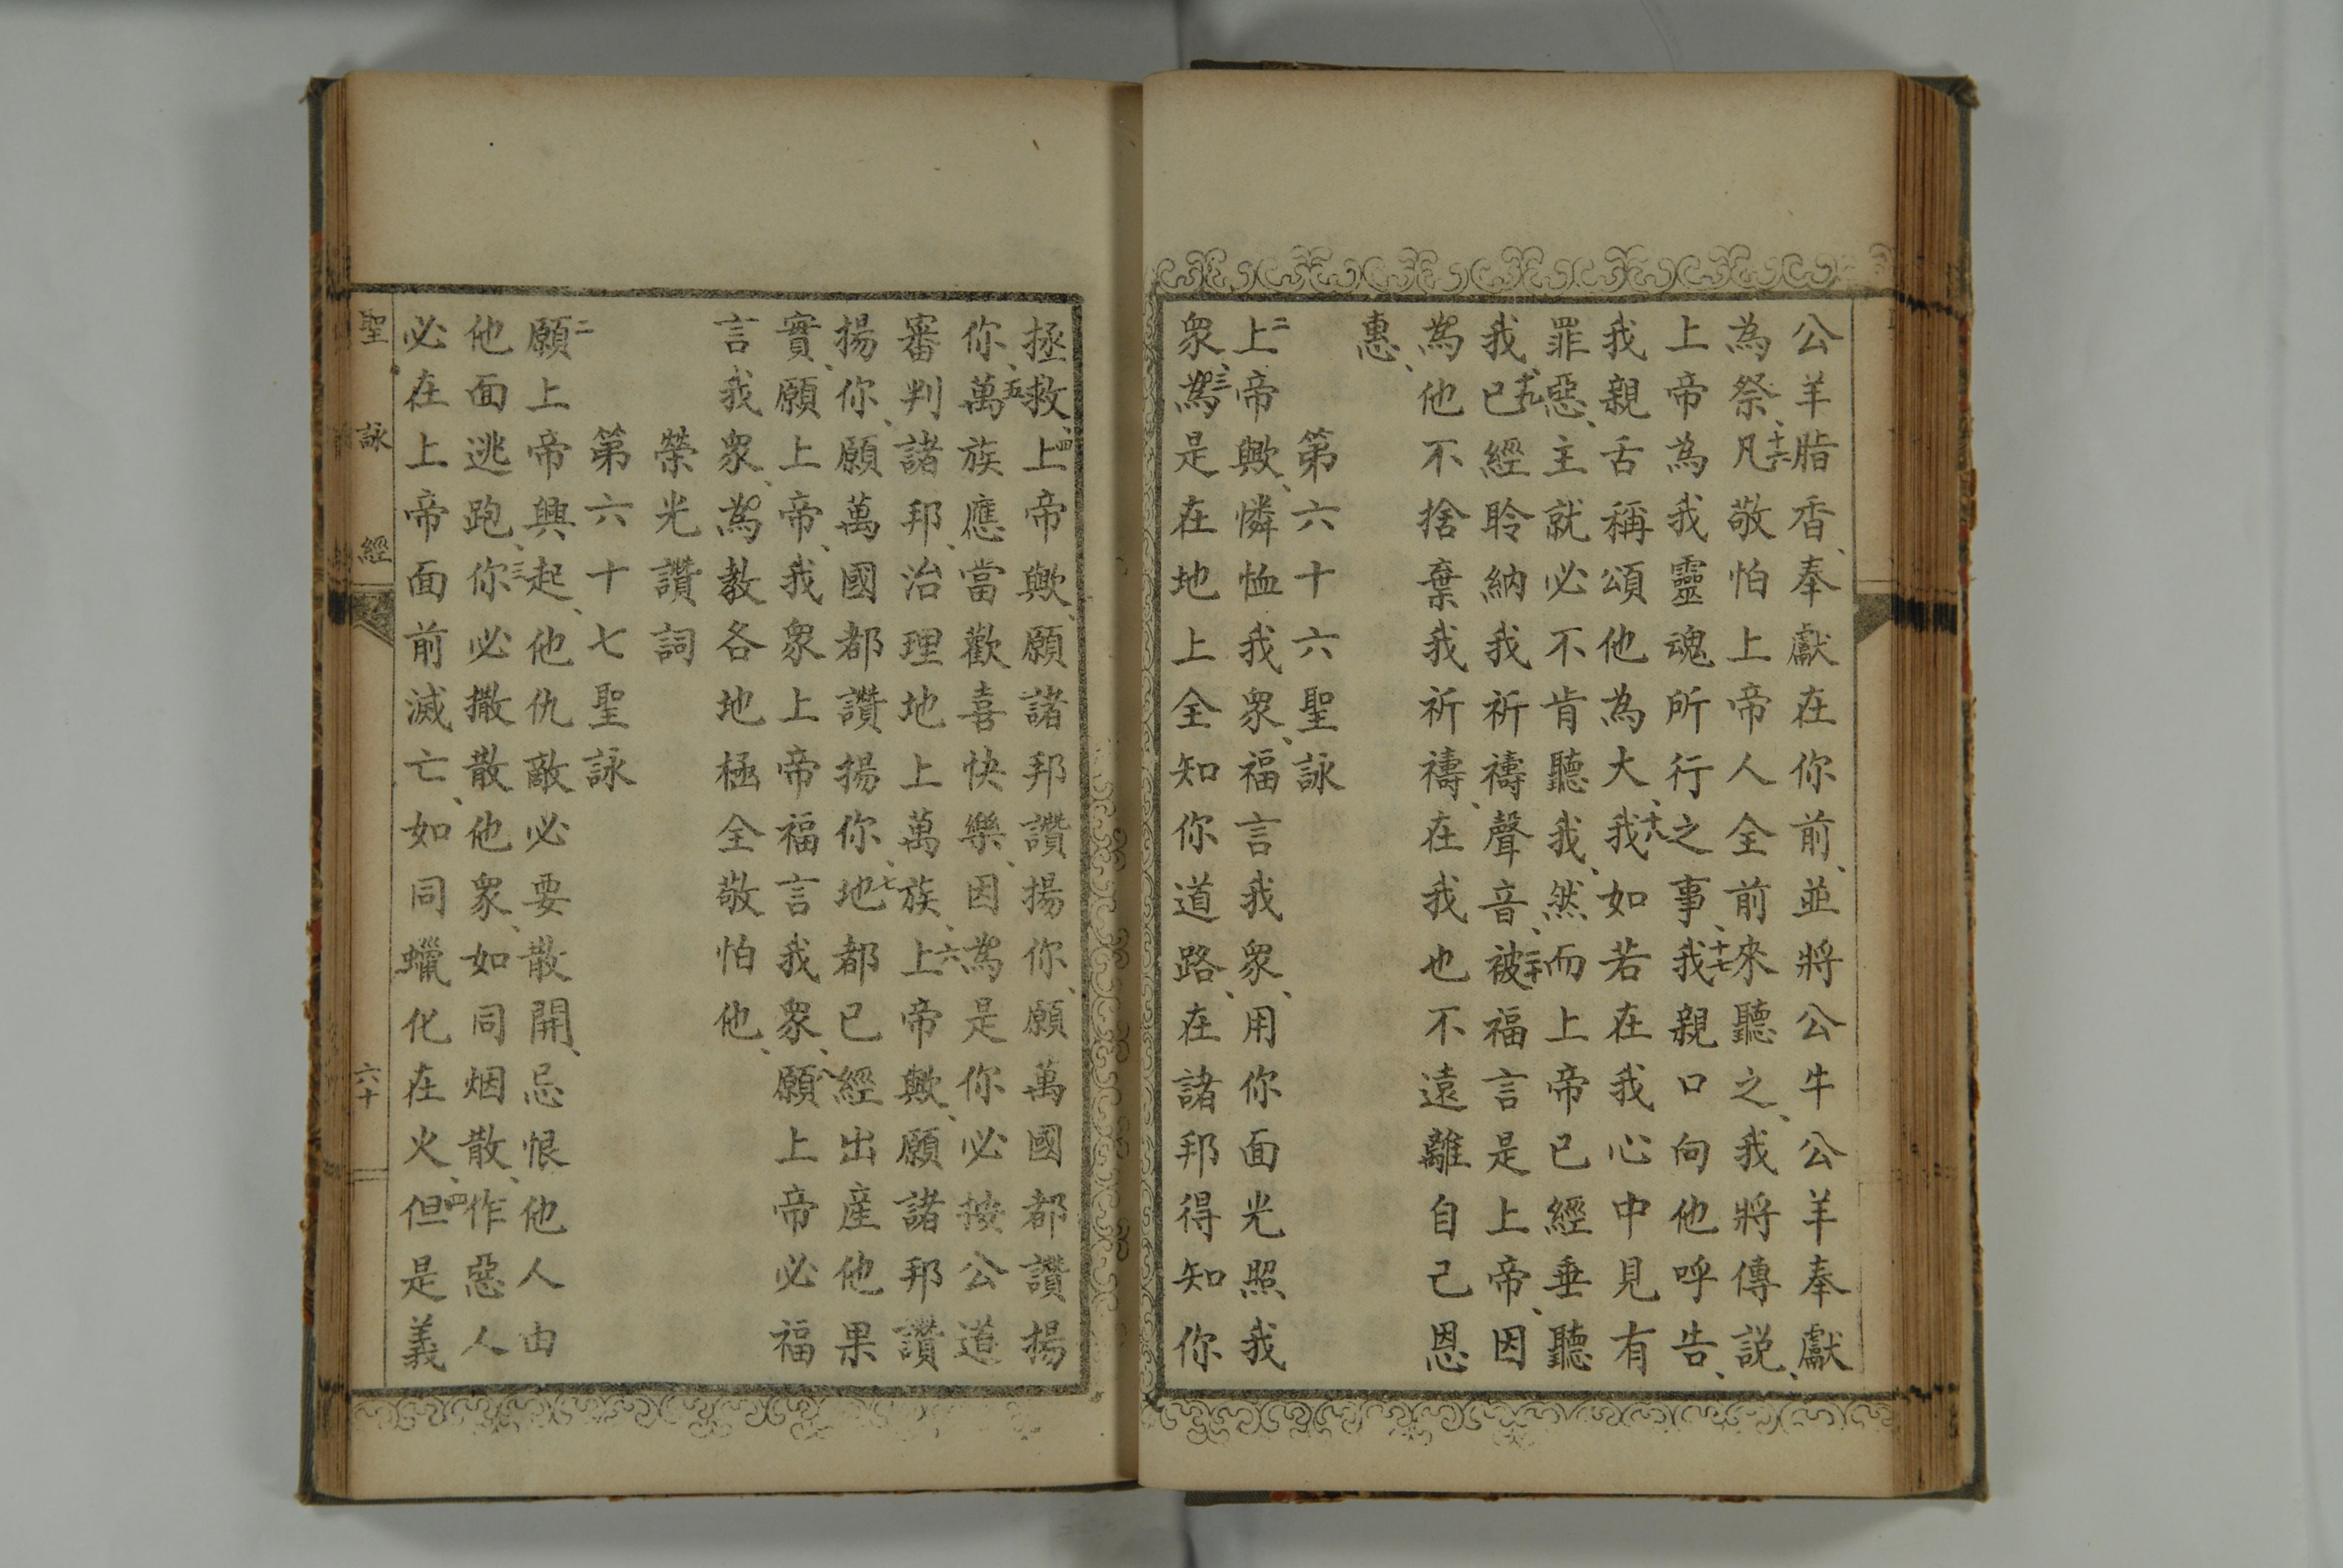 公羊脂香、奉獻在你前、並將公牛公羊奉獻
為祭、十六凡敬怕上帝人全前來聽之、我將傳説、
上帝為我靈魂所行之事、十七我親口向他呼告、
我親舌稱頌他為大、十八我如若在我心中見有
罪惡、主就必不肯聽我、然而上帝已經垂聽
我、十九已經聆納我祈禱聲音、二十被福言是上帝、因
為他不捨棄我祈禱、在我也不遠離自己恩
惠、
第六十六聖詠
二上帝歟、憐恤我衆、福言我衆、用你面光照我
衆、三為是在地上全知你道路、在諸邦得知你
拯救、四上帝歟、願諸邦讚揚你、願萬國都讚揚
你、五萬族應當歡喜快樂、因為是你必按公道
審判諸邦、治理地上萬族、六上帝歟、願諸邦讚
揚你、願萬國都讚揚你、七地都已經出産他果
實、願上帝、我衆上帝福言我衆、八願上帝必福
言我衆、為教各地極全敬怕他、
榮光讚詞
第六十七聖詠
二願上帝興起、他仇敵必要散開、忌恨他人由
他面逃跑、三你必撒散他衆、如同烟散、作惡人
必在上帝面前滅亡、如同蠟化在火、四但是義
聖詠經
六十